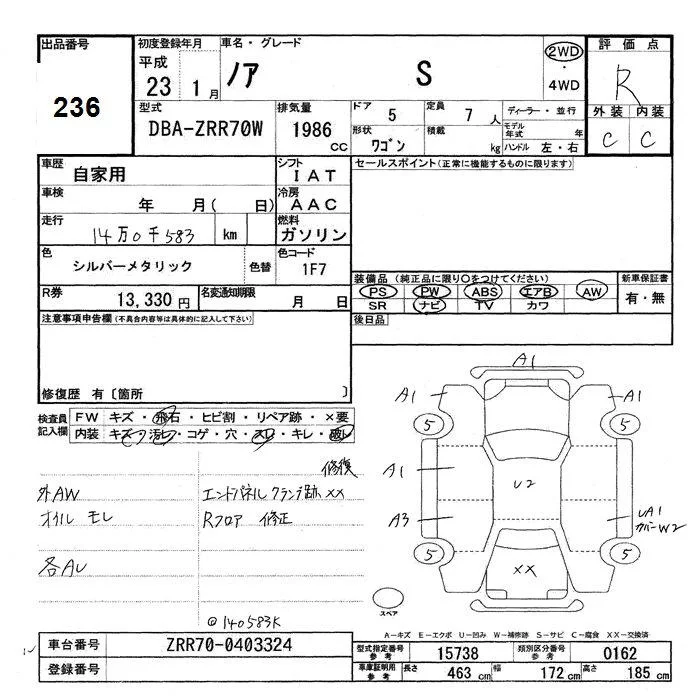 出品番号
236
初度登録年月
平成
23 1月
車名・グレード
ノア S
2WD
・
4WD
評価点
R
外装 内装
C C
型式
DBA-ZRR70W
排気量
1986 CC
ドア 5
定員 7 人
形状 ワゴン
積載 kg
ディーラー・並行
モデル年式 年
ハンドル 左・右
車歴
自家用
シフト
IAT
車検
年 月( 日)
冷房
AAC
走行
14万0千583 km
燃料
ガソリン
色
シルバーメタリック
色替
色コード
1F7
R券
13,330円
名変通知期限
月 日
セールスポイント(正常に機能するものに限ります)
装備品 (純正品に限り○をつけてください)
PS PW ABS エアB AW
SR ナビ TV カワ
新車保証書
有・無
後日品
注意事項申告欄(不具合内容等は具体的に記入して下さい)
修復歴 有〔箇所 〕
検査員
記入欄
FW キズ・飛石・ヒビ割・リペア跡・×要
内装 キズ・汚レ・コゲ・穴・スレ・キレ・破レ
修復
外AW エンドパネル クランプ跡 XX
オイル モレ Rフロア 修正
@140583K
A1
A1 A1
5 5
A1
U2
A3
UA1
カバーW2
5 5
XX
スペア
A-キズ E-エクボ U-凹み W-補修跡 S-サビ C-腐食 XX-交換済
車台番号 ZRR70-0403324
登録番号
型式指定番号
参考
15738
類別区分番号
参考
0162
車庫証明用
参考
長さ 463 cm 幅 172 cm 高さ 185 cm